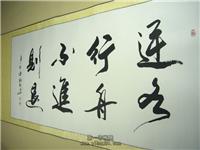 逆水
行舟
不進
則退